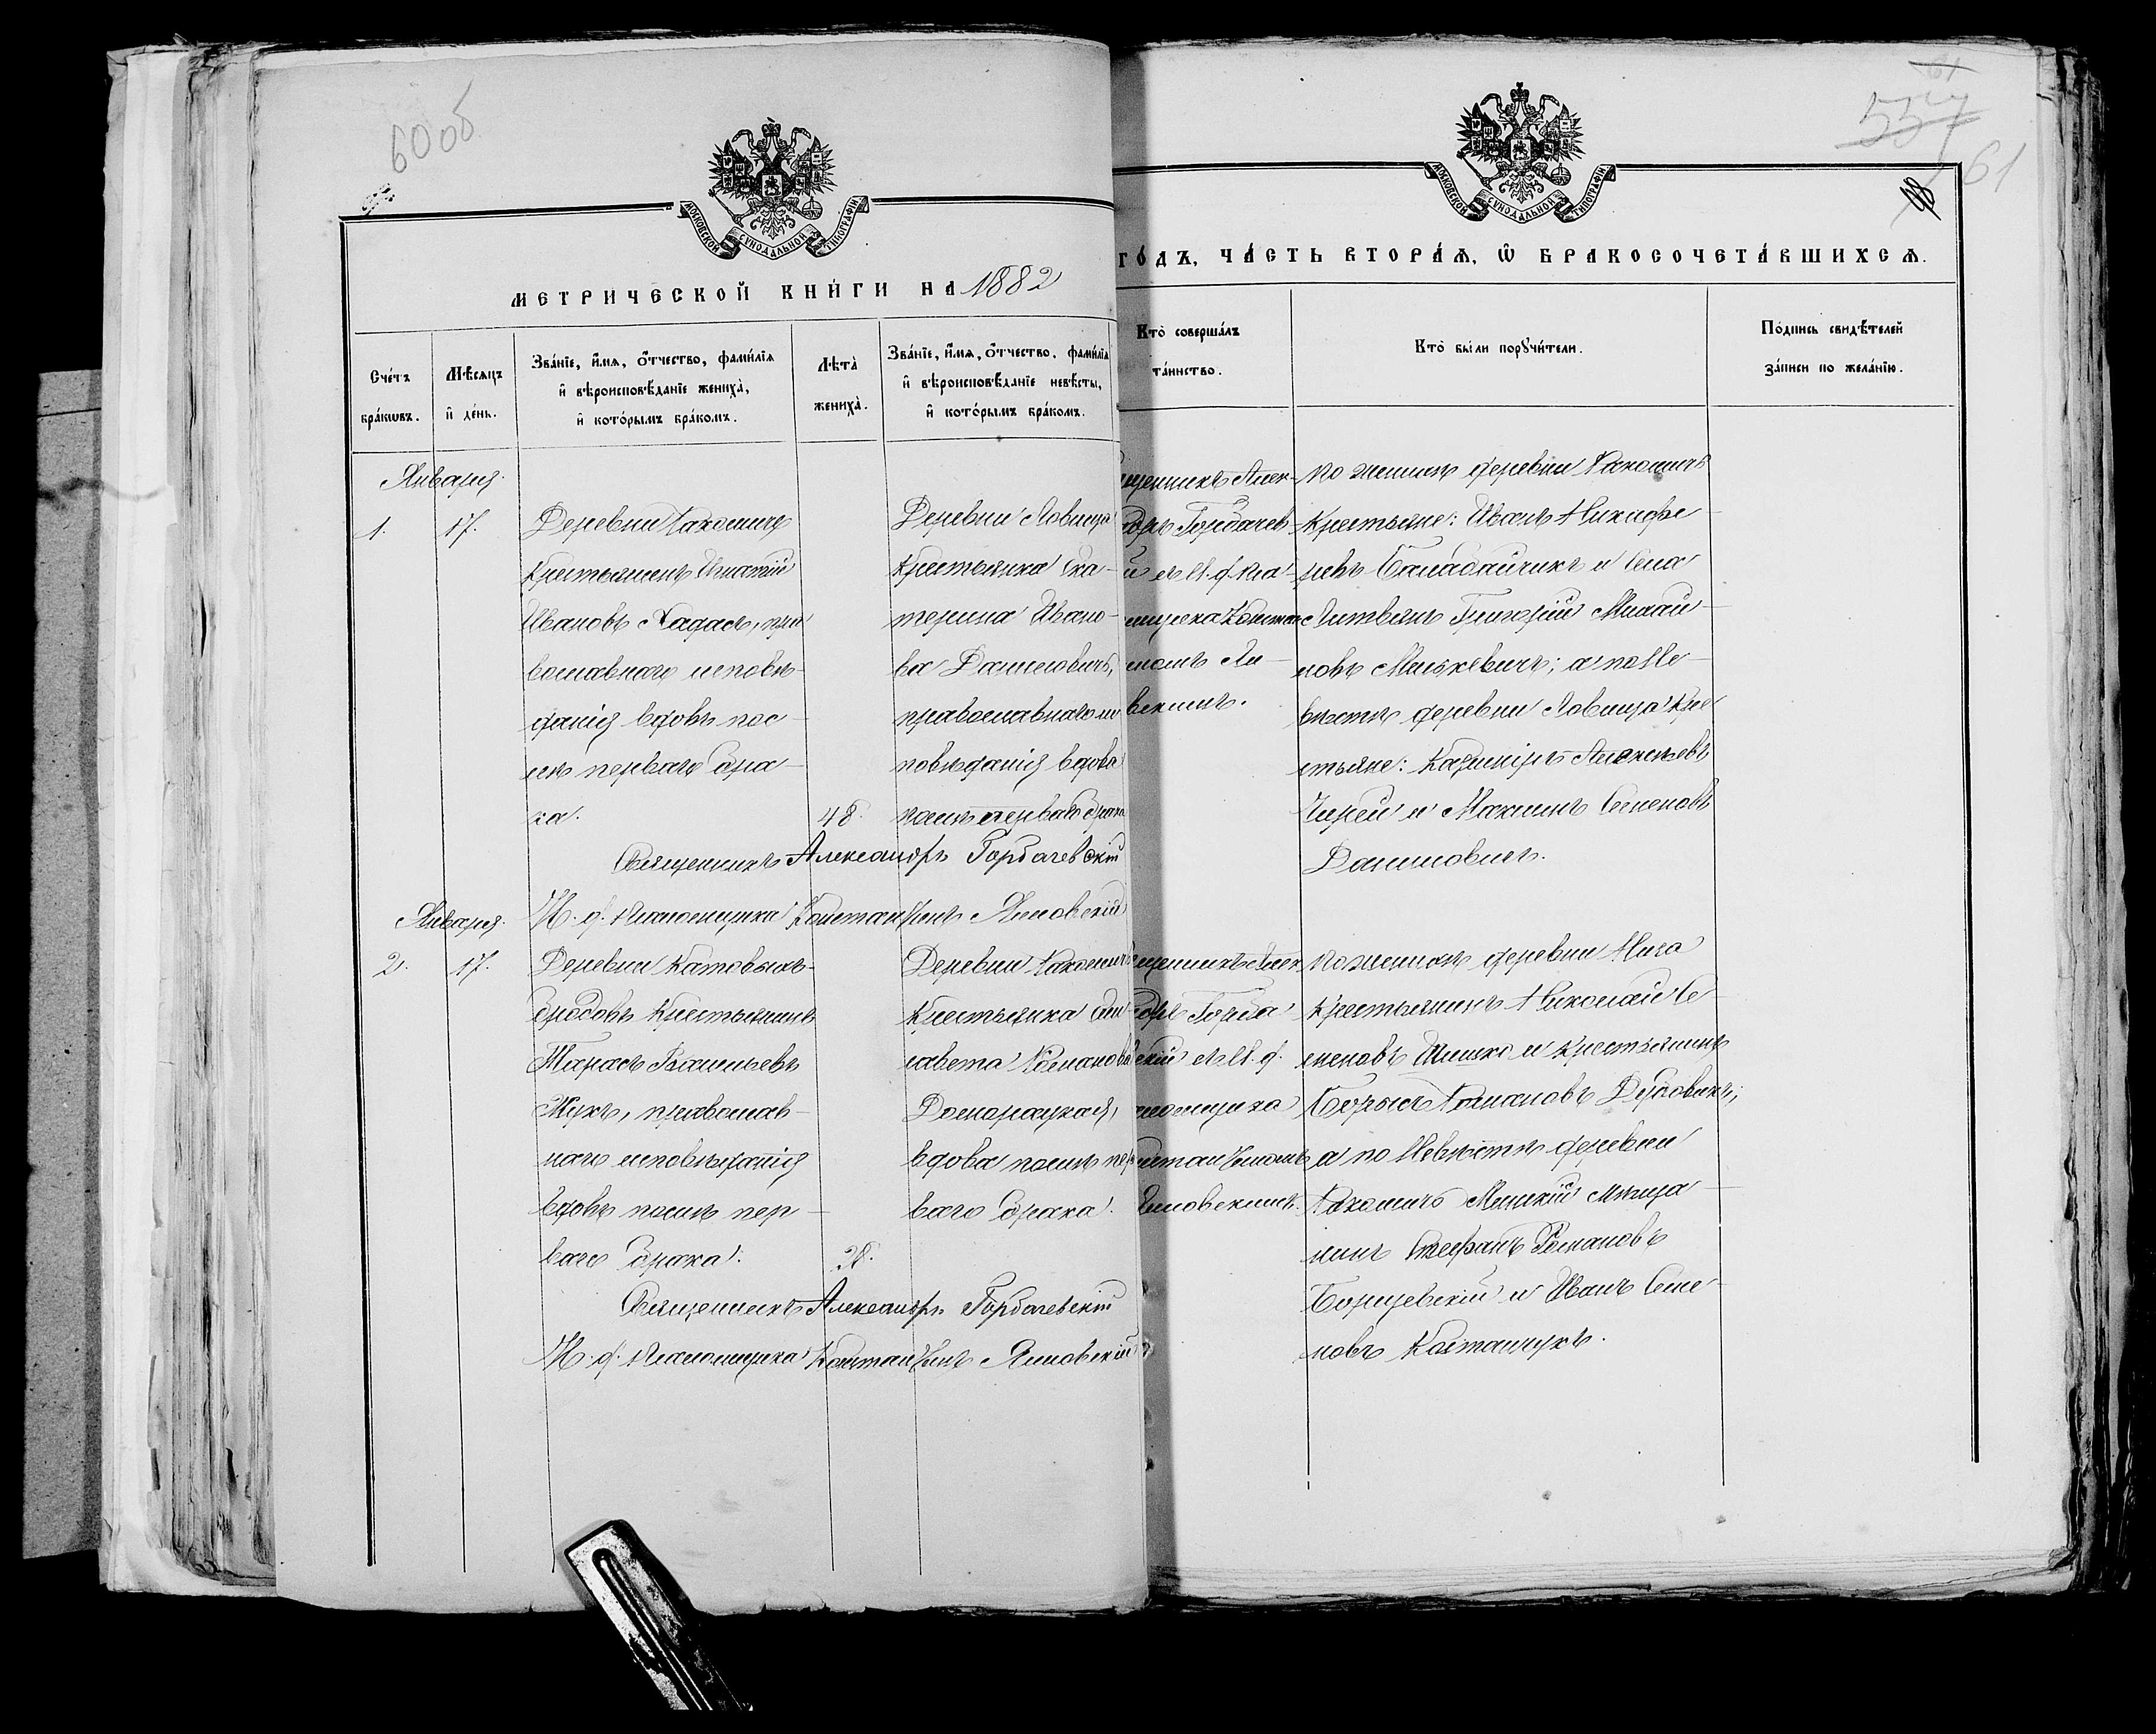 60об
61
557
61
МОСКОВСКОЙ СУНОДАЛЬНОЙ ТИПОГРАФІИ
МОСКОВСКОЙ СУНОДАЛЬНОЙ ТИПОГРАФІИ
МЕТРИЧЕСКОЙ КНИ́ГИ НА 1882
ГО́ДЪ, ЧА́СТЬ ВТОРА́Ѧ, Ѡ҆ БРАКОСОЧЕТА́ВШИХСѦ.
Сче́тъ
бра́кѡвъ.
Мѣ́сѧцъ
и҆ де́нь.
Зва́нїе, и҆́мѧ, ѻ҆́тчество, фами́лїѧ
и҆ вѣроисповѣ́данїе жениха̀,
и҆ кото́рымъ бра́комъ.
Лѣта̀
жениха̀.
Зва́нїе, и҆́мѧ, ѻ҆́тчество, фами́лїѧ
и҆ вѣроисповѣ́данїе невѣ́сты,
и҆ кото́рымъ бра́комъ.
Кто̀ соверша́лъ
та́инство.
Кто̀ бы́ли порꙋчи́тели.
По́дпись свидѣ́телей
за́писи по жела́нїю.
Января.
1.
17.
Деревни Рахович
Крестьянинъ Игнатій
Ивановъ Хадасъ, пра
вославнаго исповѣ-
данія вдовъ пос-
лѣ перваго бра-
ка.
48.
Деревни Ловища
Крестьянка Ека-
терина Ивано-
ва Данилович,
православнаго ис
повѣданія вдова
послѣ перваго брака
щенникъ Алек-
сдръ Горбачев
й съ И. д. Пса-
мщика Констан
номъ Ли-
вскимъ.
По женихѣ деревни Рахович
Крестьяне: Иванъ Никифо
ровъ Баладайчикъ и Сила
Литвинъ Григорій Михай-
ловъ Минкевичъ; а по Не-
вѣстѣ деревни Ловища Кре
стьяне: Казиміръ Алексѣевъ
Чирей и Максимъ Семеновъ
Даниловичъ.
Священникъ Александръ Горбачевскій
И. д. Псаломщика Константинъ Лисовскій
Января.
2.
17.
Деревни Катовыхъ-
бродовъ Крестьянинъ
Тарасъ Васильевъ
Жукъ, православ-
наго исповѣданія
вдовъ послѣ пер-
ваго брака.
28.
Деревни Рахович
Крестьянка Ели-
савета Романова
Домарацкая,
вдова послѣ пер
ваго брака.
щенникъ Алек
сдръ Горба-
скій съ И. д.
ломщика
нстантиномъ
Лисовскимъ.
По женихѣ деревни Нига
Крестьянинъ Николай Се-
меновъ Шишко и Крестьянинъ
Борисъ Романовъ Дубовикъ;
а по Невѣстѣ деревни
Рахович Минскій мѣща-
нинъ Стефанъ Романовъ
Борщевскій и Иванъ Семе-
новъ Касташукъ.
Священникъ Александръ Горбачевскій
И. д. Псаломщика Константинъ Лисовскій